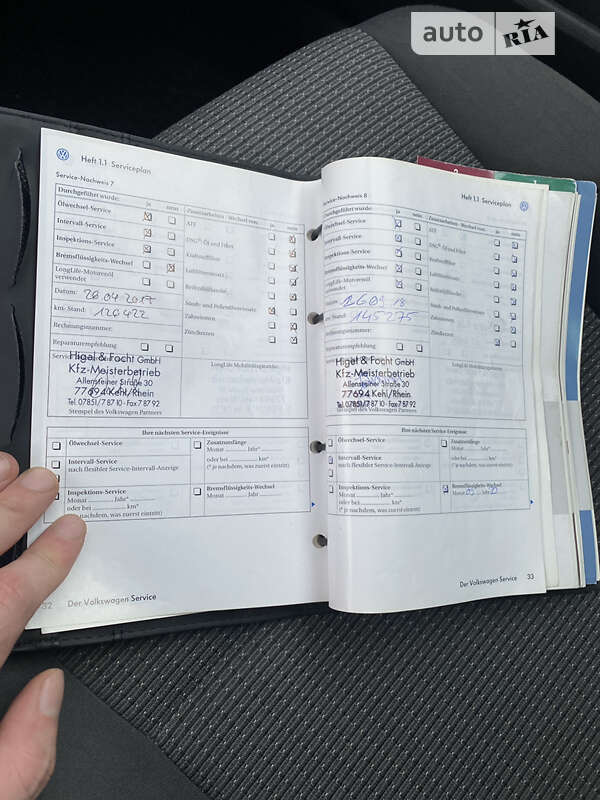 auto RIA
Heft 1.1 Serviceplan
Service-Nachweis 7
Durchgeführt wurde: ja nein Zusatzarbeiten - Wechsel von: ja nein
Ölwechsel-Service ATF
Intervall-Service DSG® Öl und Filter
Inspektions-Service Kraftstofffilter
Bremsflüssigkeits-Wechsel Luftfiltereinsatz
LongLife-Motorenöl verwendet Reifenfüllmittel
Datum: 26.04.2017 Staub- und Pollenfiltereinsatz
km-Stand: 126422 Zahnriemen
Rechnungsnummer: Zündkerzen
Reparaturempfehlung
LongLife Mobilitätsgarantie
Higal & Focht GmbH
Kfz-Meisterbetrieb
Allensteiner Straße 30
77694 Kehl/Rhein
Tel. 07851/7 87 10 · Fax 7 87 92
Stempel des Volkswagen Partners
Ihre nächsten Service-Ereignisse
Ölwechsel-Service
Intervall-Service
nach flexibler Service-Intervall-Anzeige
Inspektions-Service
Monat Jahr*
oder bei km*
(* je nachdem, was zuerst eintritt)
Zusatzumfänge
Monat Jahr*
oder bei km*
(* je nachdem, was zuerst eintritt)
Bremsflüssigkeits-Wechsel
Monat Jahr
32 Der Volkswagen Service
Heft 1.1 Serviceplan
Service-Nachweis 8
Durchgeführt wurde: ja nein Zusatzarbeiten - Wechsel von: ja nein
Ölwechsel-Service ATF
Intervall-Service DSG® Öl und Filter
Inspektions-Service Kraftstofffilter
Bremsflüssigkeits-Wechsel Luftfiltereinsatz
LongLife-Motorenöl verwendet Reifenfüllmittel
Datum: 26.09.18 Staub- und Pollenfiltereinsatz
km-Stand: 145275 Zahnriemen
Rechnungsnummer: Zündkerzen
Reparaturempfehlung
LongLife Mobilitätsgarantie
Higal & Focht GmbH
Kfz-Meisterbetrieb
Allensteiner Straße 30
77694 Kehl/Rhein
Tel. 07851/7 87 10 · Fax 7 87 92
Stempel des Volkswagen Partners
Ihre nächsten Service-Ereignisse
Ölwechsel-Service
Intervall-Service
nach flexibler Service-Intervall-Anzeige
Inspektions-Service
Monat Jahr*
oder bei km*
(* je nachdem, was zuerst eintritt)
Zusatzumfänge
Monat Jahr*
oder bei km*
(* je nachdem, was zuerst eintritt)
Bremsflüssigkeits-Wechsel
Monat Jahr
Der Volkswagen Service 33